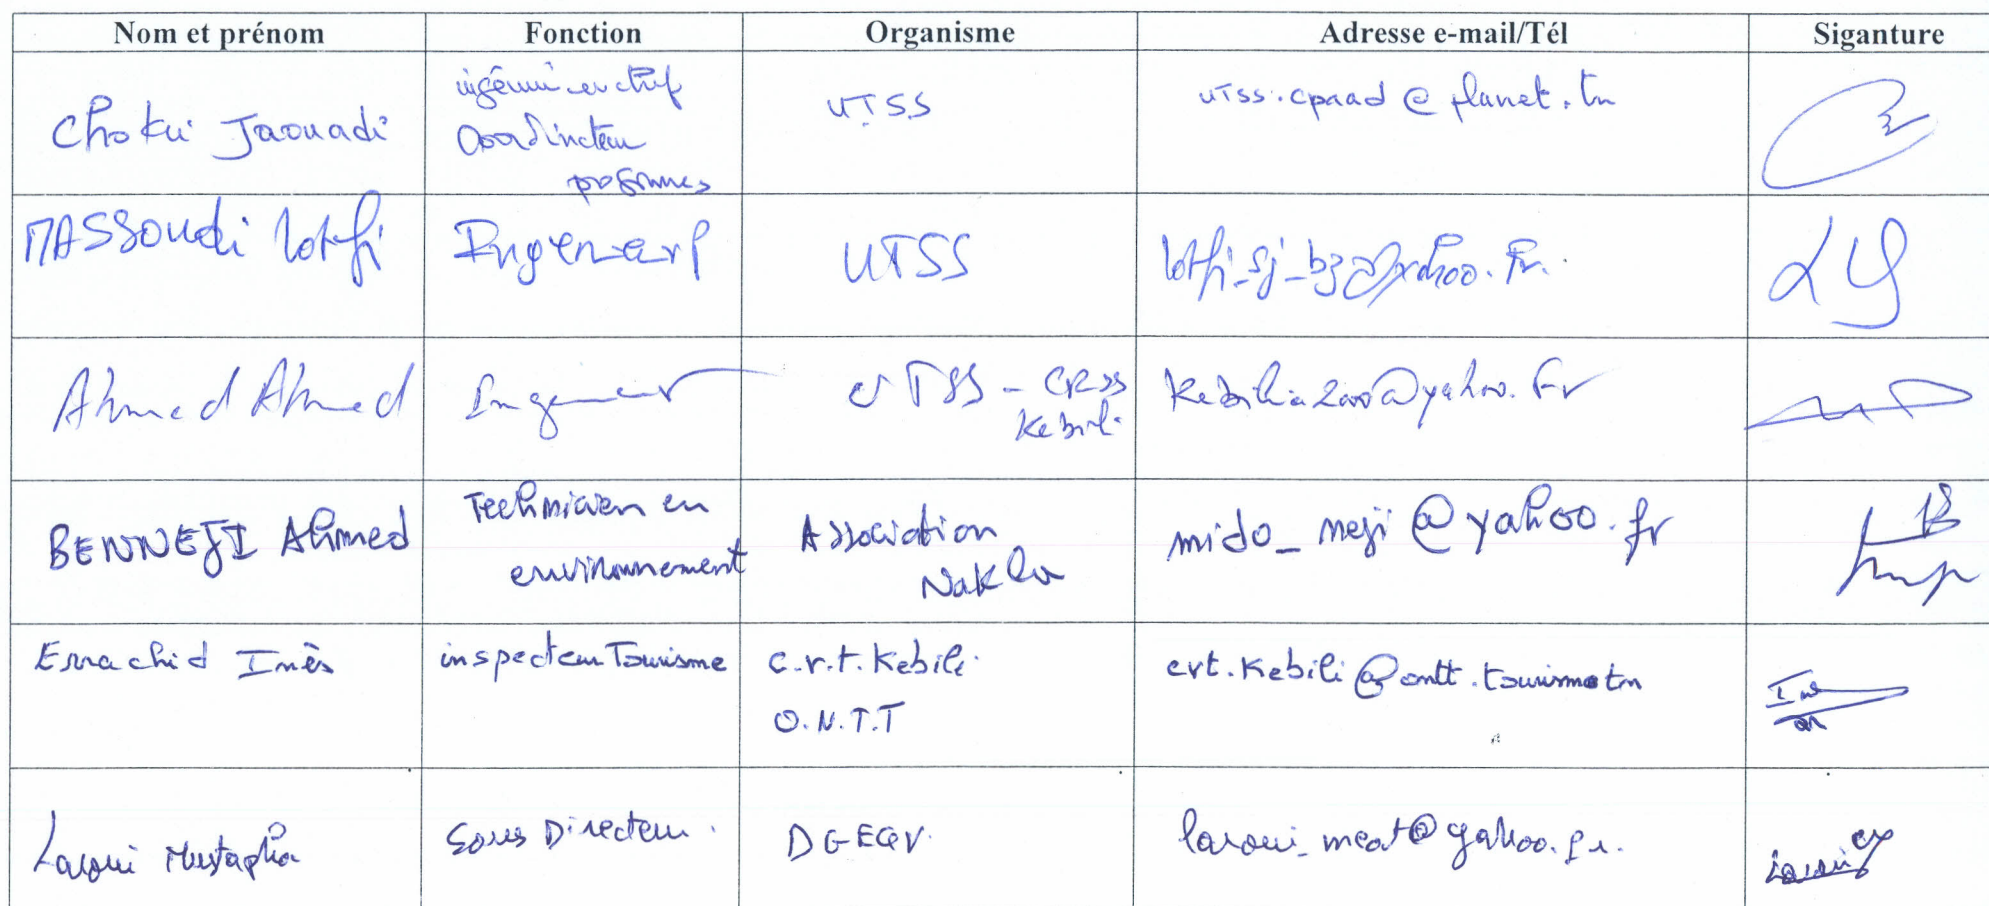 Nom et prénom Fonction Organisme Adresse e-mail/Tél Siganture
Chokri Jaouadi
ingénieur en chef
Coordinateur
programmes
UTSS
utss.cpaad@planet.tn
MASSOUdi lotfi
UTSS
lotfi_sj_bz@yahoo.fr.
Ahmed Ahmed
Ingenieur
UTSS - CRSS
Kebili
@yahoo.fr
BENNEJI Ahmed
Technicien en
environnement
Association
Nakhla
mido_neji@yahoo.fr
Errachid Inès
inspecteur Tourisme
c.r.t. Kebili
O.N.T.T
crt.Kebili@ontt.tourisme.tn
Laroui Mustapha
Sous Directeur.
DGEQV.
laroui_meat@yahoo.fr.